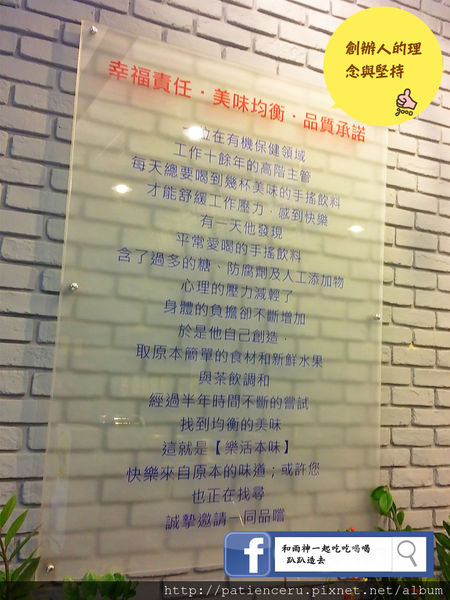 創辦人的理
念與堅持
GOOD
幸福責任．美味均衡．品質承諾
位在有機保健領域
工作十餘年的高階主管
每天總要喝到幾杯美味的手搖飲料
才能舒緩工作壓力．感到快樂
有一天他發現
平常愛喝的手搖飲料
含了過多的糖、防腐劑及人工添加物
心理的壓力減輕了
身體的負擔卻不斷增加
於是他自己創造．
取原本簡單的食材和新鮮水果
與茶飲調和
經過半年時間不斷的嘗試
找到均衡的美味
這就是【樂活本味】
快樂來自原本的味道；或許您
也正在找尋
誠摯邀請一同品嚐
f
和雨神一起吃吃喝喝
趴趴造去
http://patienceru.pixnet.net/album